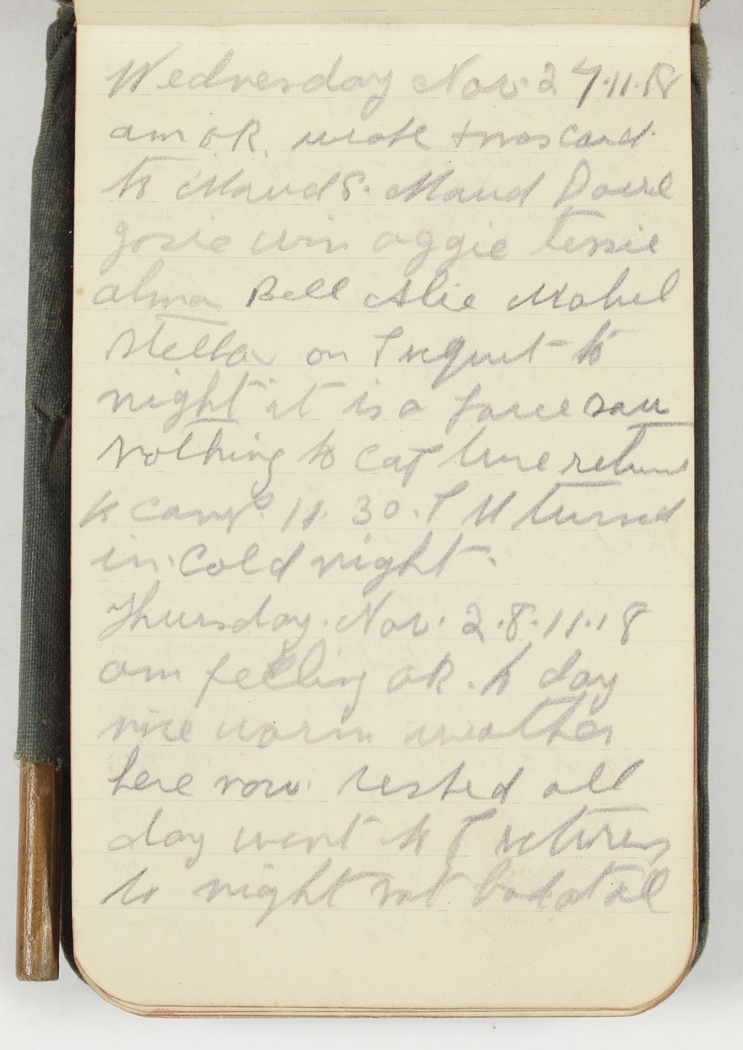 Wednesday Nov. 27.11.18
am ok. wrote xmas card
to Maud S. Maud
Josie win aggie tessie
alma Bell Alie Mabel
Stella on Piquet to
night it is a farce saw
nothing to capture returned
to camp 11.30. P M turned
in. cold night.
Thursday. Nov. 28.11.18
am feeling ok. to day
nice warm weather
here now. rested all
day went to Pictures
to night not bad at all